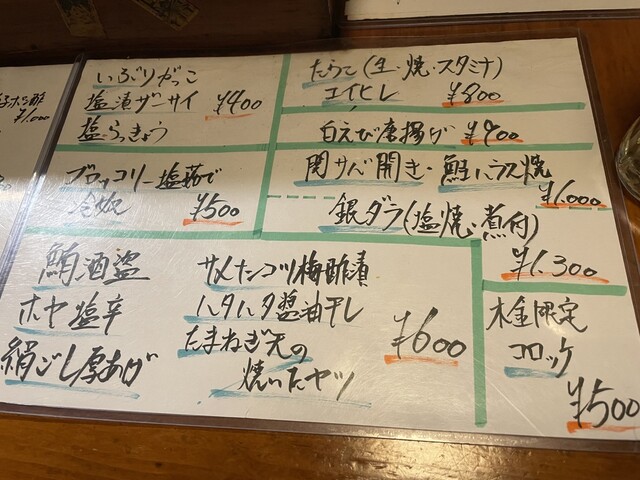 いぶりがっこ
塩漬ザーサイ ¥400
塩らっきょう
ブロッコリー塩茹で
冷奴 ¥500
たらこ(生・焼・スタミナ)
エイヒレ ¥800
白えび唐揚げ ¥900
関サバ開き・鮭ハラス焼
¥1,000
銀ダラ(塩焼・煮付)
¥1,300
鮪酒盗
ホヤ塩辛
絹ごし厚あげ
サメナンコツ梅酢漬
ハタハタ醤油干し
たまねぎ丸の
焼いたヤツ
¥600
木金限定
コロッケ
¥500
¥1,000